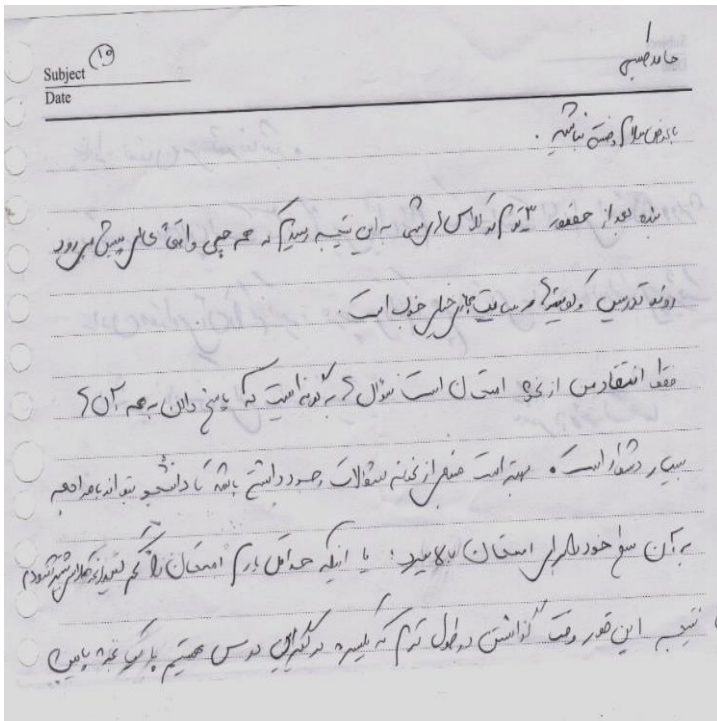 Subject ۱۹
Date
حامد
با عرض سلام و خسته نباشید.
بنده بعد از حضور ۳ ترم در کلاس های شما به این نتیجه رسیدم که همه چی واقعاً عالی پیش می رود
روند تدریس و کوییزها و سایت خیلی خوب است
فقط انتقاد من از نحوه امتحان است سوال ها به گونه ایست که پاسخ دادن به همه آن ها
بسیار دشوار است. بهتر است منبعی از نمونه سوالات وجود داشته باشد تا دانشجو بتواند با مراجعه
به آن سطح خود را برای امتحان بالا ببرد؛ یا اینکه حداقل بارم امتحان را کم کنید
نتیجه این قدر وقت گذاشتن در طول ترم که همیشه درگیر این درس هستیم با یک نمره پایین